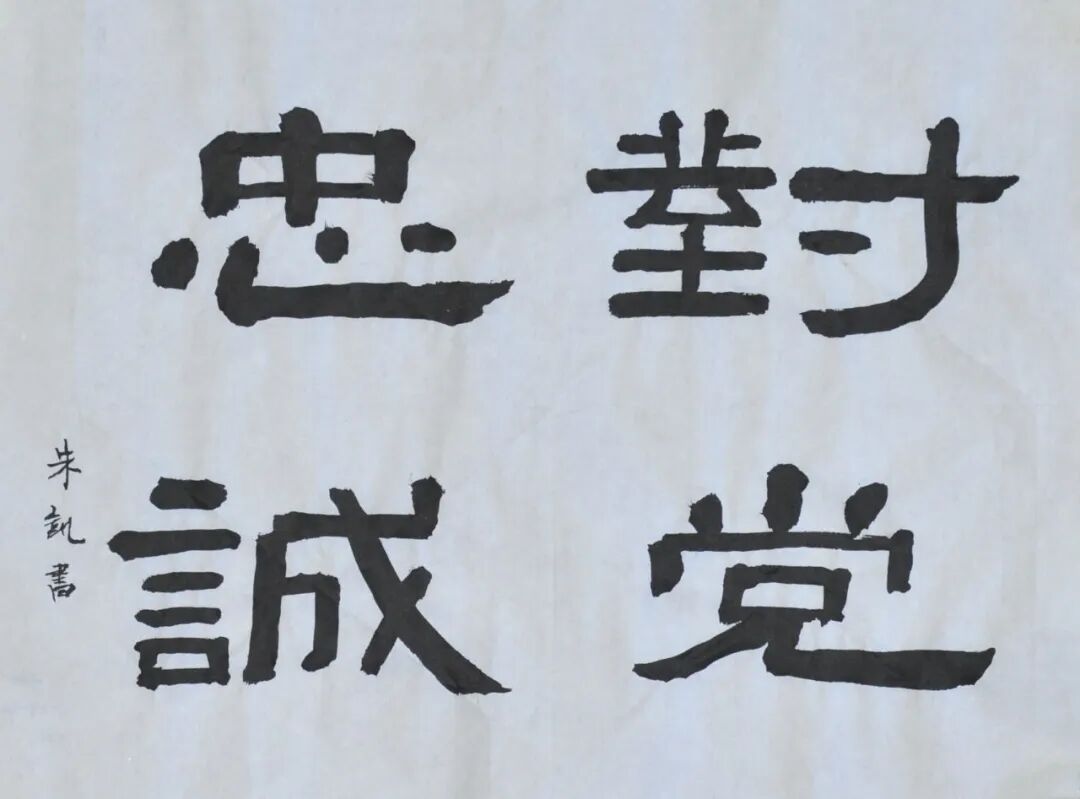 對党
忠誠
朱訊書